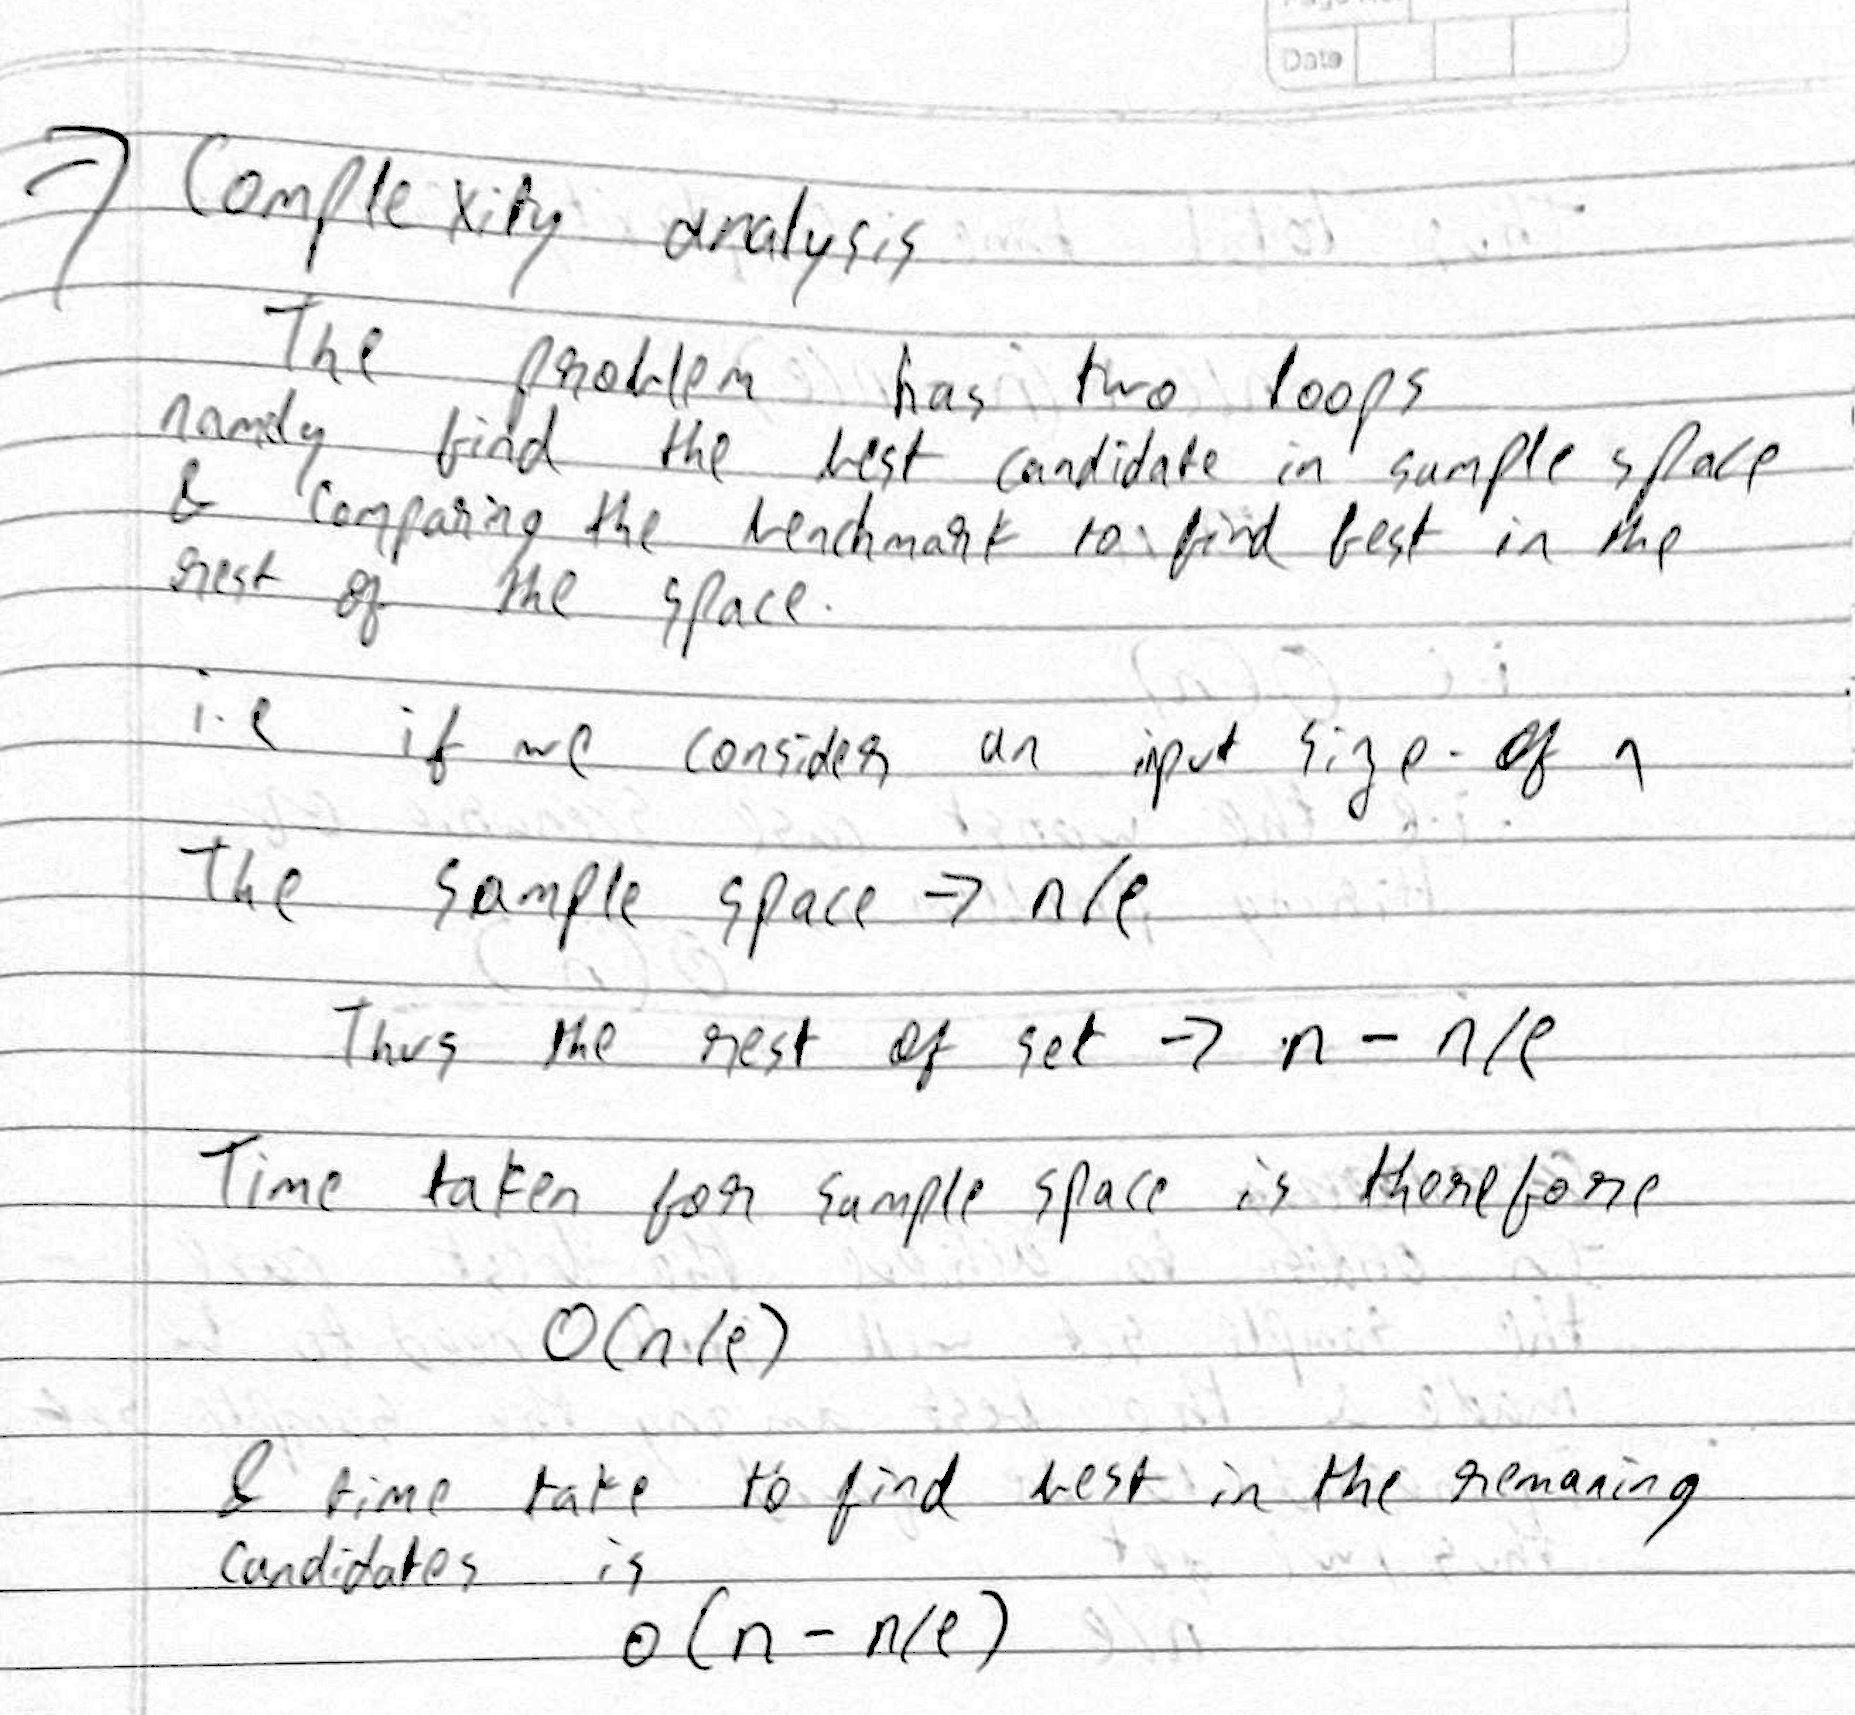 Date
=> Complexity analysis
The problem has two loops
namely find the best candidate in sample space
& comparing the benchmark to find best in the
rest of the space.
i.e if we consider an input size of n
The sample space -> n/e
Thus the rest of set -> n - n/e
Time taken for sample space is therefore
O(n/e)
& time take to find best in the remaning
candidates is
O(n - n/e)